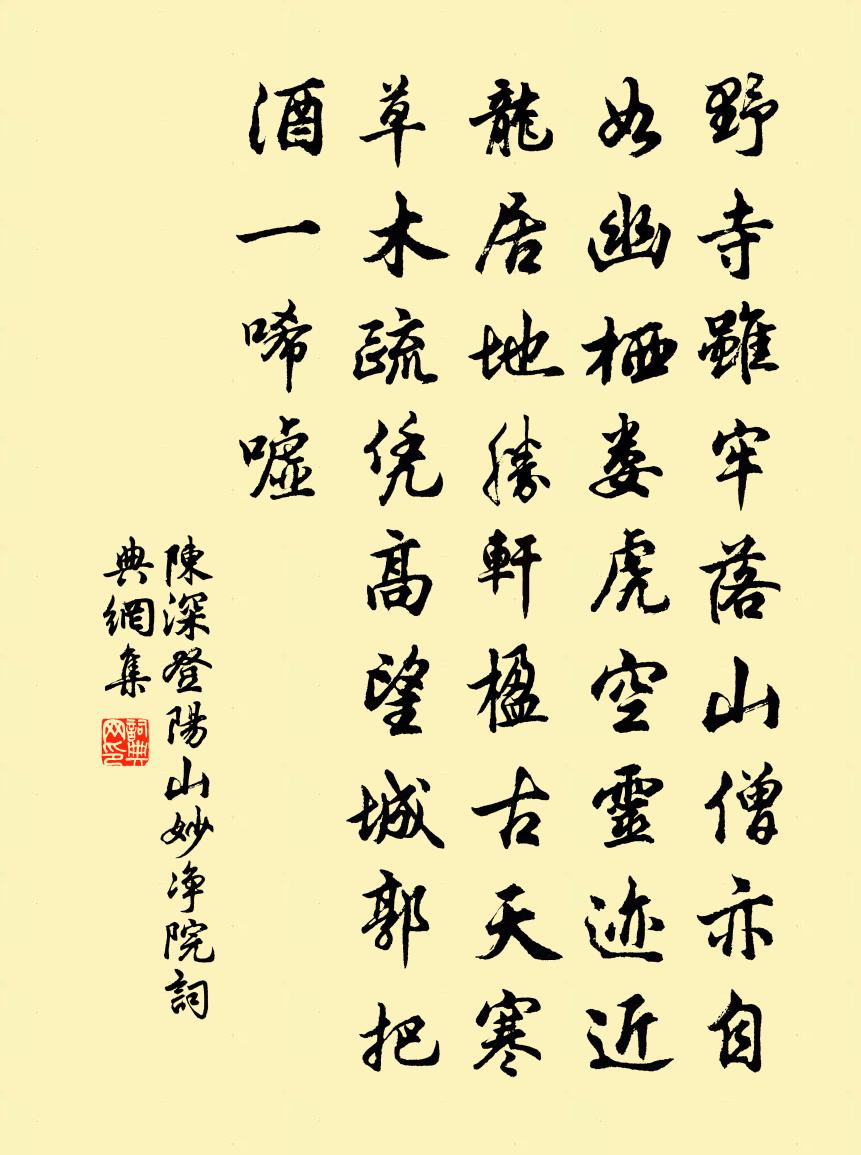 野寺雖牢落山僧亦自
如幽栖娄虎空靈迹近
龍居地勝軒楹古天寒
草木疏凭高望城郭把
酒一唏嘘
陳深登陽山妙净院詞
典網集
詞典網印